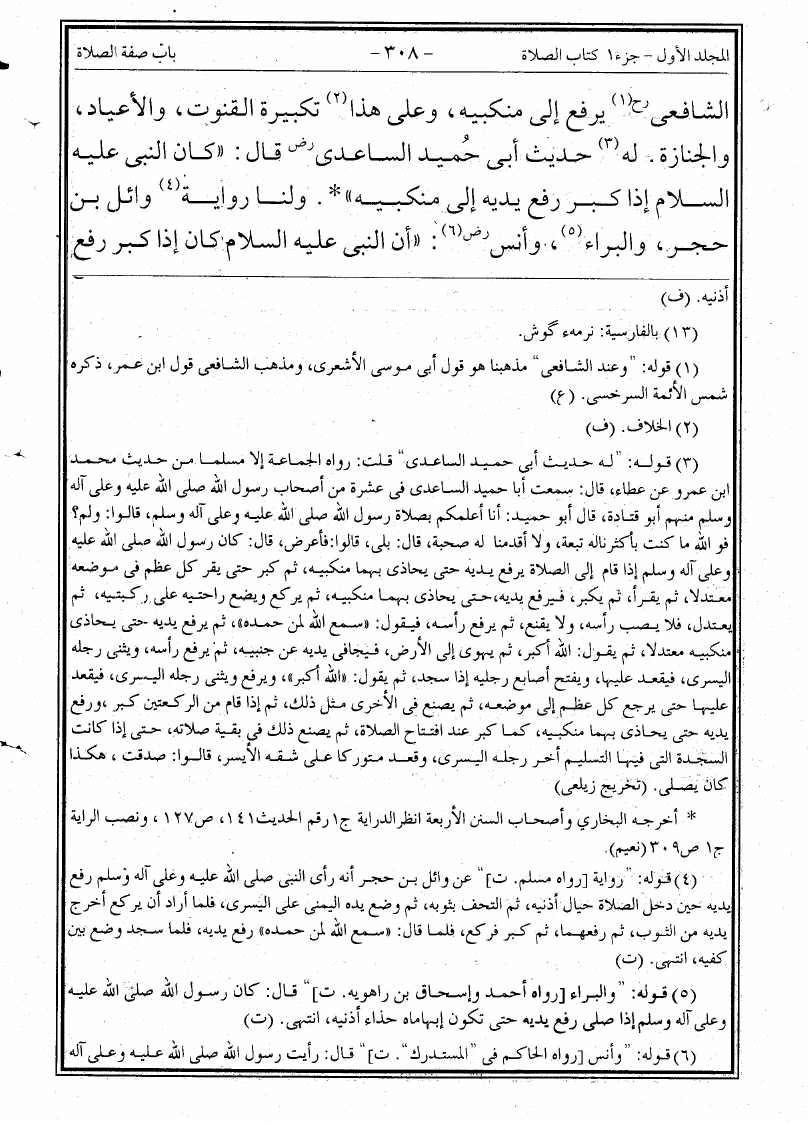 المجلد الأول – جزء ١ كتاب الصلاة - ٣٠٨ - باب صفة الصلاة
الشافعى رح(١) يرفع إلى منكبيه، وعلى هذا(٢) تكبيرة القنوت، والأعياد،
والجنازة. له(٣) حديث أبى حُميد الساعدى رض قال: «كان النبى عليه
السلام إذا كبر رفع يديه إلى منكبيه»*. ولنا رواية(٤) وائل بن
حجر، والبراء(٥)، وأنس رض(٦): «أن النبى عليه السلام كان إذا كبر رفع
أذنيه. (ف)
(١٣) بالفارسية: نرمهء گوش.
(١) قوله: "وعند الشافعى" مذهبنا هو قول أبى موسى الأشعرى، ومذهب الشافعى قول ابن عمر، ذكره
شمس الأئمة السرخسى. (ع)
(٢) الخلاف. (ف)
(٣) قوله: "له حديث أبى حميد الساعدى" قلت: رواه الجماعة إلا مسلما من حديث محمد
ابن عمرو عن عطاء، قال: سمعت أبا حميد الساعدى فى عشرة من أصحاب رسول الله صلى الله عليه وعلى آله
وسلم منهم أبو قتادة، قال أبو حميد: أنا أعلمكم بصلاة رسول الله صلى الله عليه وعلى آله وسلم، قالوا: ولم؟
فو الله ما كنت بأكثرناله تبعة، ولا أقدمنا له صحبة، قال: بلى، قالوا: فأعرض، قال: كان رسول الله صلى الله عليه
وعلى آله وسلم إذا قام إلى الصلاة يرفع يديه حتى يحاذى بهما منكبيه، ثم كبر حتى يقر كل عظم فى موضعه
معتدلا، ثم يقرأ، ثم يكبر، فيرفع يديه، حتى يحاذى بهما منكبيه، ثم يركع ويضع راحتيه على ركبتيه، ثم
يعتدل، فلا يصب رأسه، ولا يقنع، ثم يرفع رأسه، فيقول: «سمع الله لمن حمده»، ثم يرفع يديه حتى يحاذى
منكبيه معتدلا، ثم يقول: الله أكبر، ثم يهوى إلى الأرض، فيجافى يديه عن جنبيه، ثم يرفع رأسه، ويثنى رجله
اليسرى، فيقعد عليها، ويفتح أصابع رجليه إذا سجد، ثم يقول: «الله أكبر»، ويرفع ويثنى رجله اليسرى، فيقعد
عليها حتى يرجع كل عظم إلى موضعه، ثم يصنع فى الأخرى مثل ذلك، ثم إذا قام من الركعتين كبر، ورفع
يديه حتى يحاذى بهما منكبيه، كما كبر عند افتتاح الصلاة، ثم يصنع ذلك فى بقية صلاته، حتى إذا كانت
السجدة التى فيها التسليم أخر رجله اليسرى، وقعد متوركا على شقه الأيسر، قالوا: صدقت، هكذا
كان يصلى. (تخريج زيلعى)
* أخرجه البخاري وأصحاب السنن الأربعة انظر الدراية ج١ رقم الحديث ١٤١، ص١٢٧، ونصب الراية
ج١ ص٣٠٩ (نعيم).
(٤) قوله: "رواية [رواه مسلم. ت]" عن وائل بن حجر أنه رأى النبى صلى الله عليه وعلى آله وسلم رفع
يديه حين دخل الصلاة حيال أذنيه، ثم التحف بثوبه، ثم وضع يده اليمنى على اليسرى، فلما أراد أن يركع أخرج
يديه من الثوب، ثم رفعهما، ثم كبر فركع، فلما قال: «سمع الله لمن حمده» رفع يديه، فلما سجد وضع بين
كفيه، انتهى. (ت)
(٥) قوله: "والبراء [رواه أحمد وإسحاق بن راهويه. ت]" قال: كان رسول الله صلى الله عليه
وعلى آله وسلم إذا صلى رفع يديه حتى تكون إبهاماه حذاء أذنيه، انتهى. (ت)
(٦) قوله: "وأنس [رواه الحاكم فى "المستدرك". ت]" قال: رأيت رسول الله صلى الله عليه وعلى آله